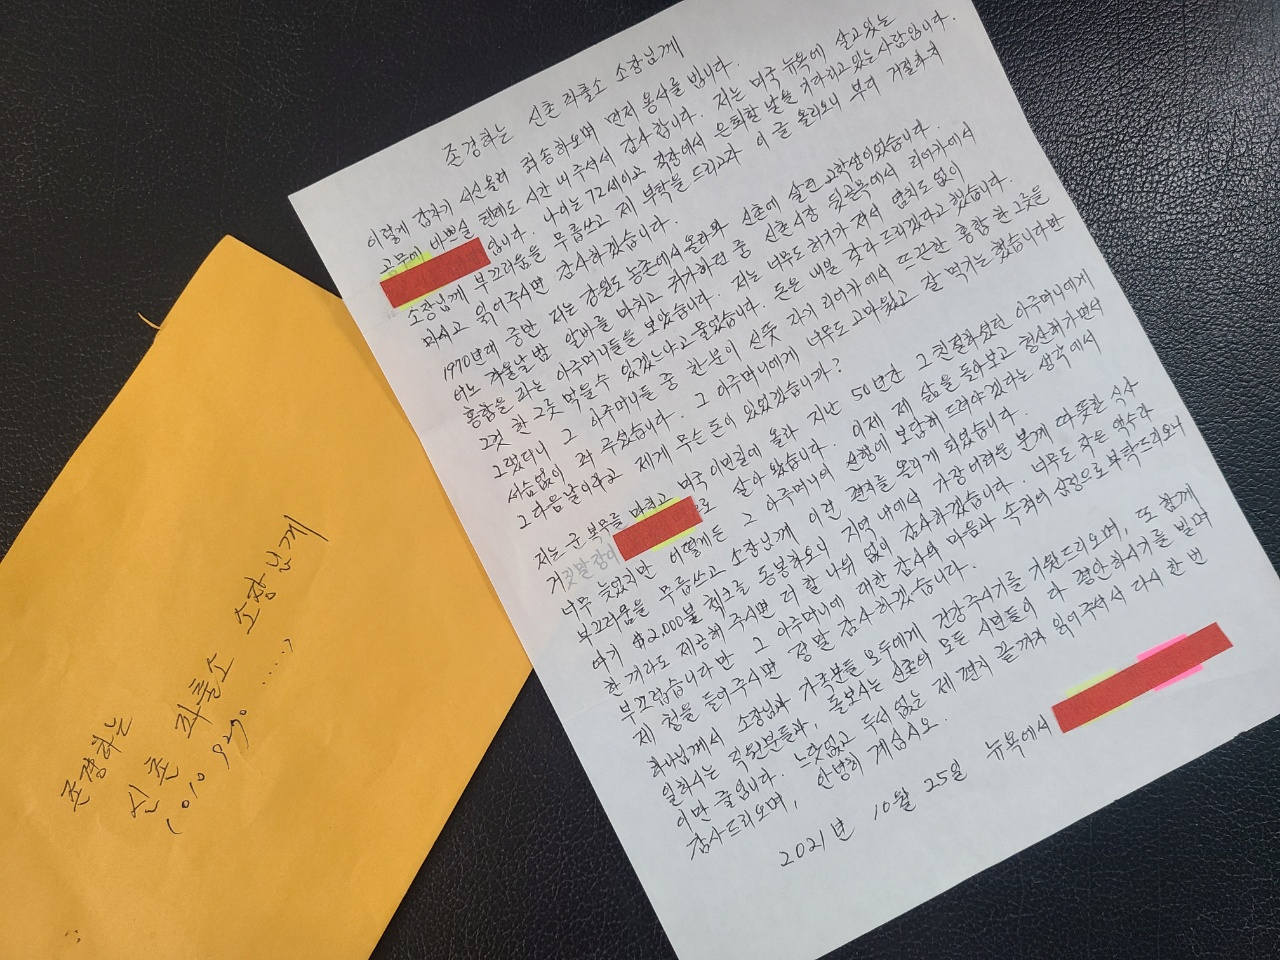 존경하는 신촌 파출소 소장님께
이렇게 갑자기 서신올려 죄송하오며 먼저 용서를 빕니다.
공무에 바쁘실 텐데도 시간 내 주셔서 감사합니다. 저는 미국 뉴욕에 살고있는
입니다. 나이는 72세이고 직장에서 은퇴할 날을 기다리고 있는 사람입니다.
소장님께 부끄러움을 무릅쓰고 제 부탁을 드리고자 이 글 올리오니 부디 거절하지
마시고 읽어주시면 감사하겠습니다.
1970년대 중반 저는 강원도 농촌에서 올라와 신촌에 살던 고학생이었습니다.
어느 겨울날 밤 알바를 마치고 귀가하던 중 신촌시장 뒷골목에서 리어카에서
홍합을 파는 아주머니들을 보았습니다. 저는 너무도 허기가 져서 염치도 없이
그것 한 그릇 먹을수 있겠느냐고 물었습니다. 돈은 내일 갖다 드리겠다고 했습니다.
그랬더니 그 아주머니들 중 한분이 선뜻 자기 리어카에서 뜨끈한 홍합 한 그릇을
서슴없이 퍼 주셨습니다. 그 아주머니에게 너무도 고마웠고 잘 먹기는 했습니다만
그 다음날이라고 제게 무슨 돈이 있었겠습니까?
저는 군 복무를 마치고 미국 이민길에 올라 지난 50년간 그 친절하셨던 아주머니에게
거짓말쟁이 로 살아 왔습니다. 이제 제 삶을 돌아보고 청산해가면서
너무 늦었지만 어떻게든 그 아주머니의 선행에 보답해 드려야겠다는 생각에서
부끄러움을 무릅쓰고 소장님께 이런 편지를 올리게 되었습니다.
여기 $2,000불 첵크를 동봉하오니 지역 내에서 가장 어려운 분께 따뜻한 식사
한 끼라도 제공해 주시면 더 할 나위 없이 감사하겠습니다. 너무도 작은 액수라
부끄럽습니다만 그 아주머니에 대한 감사의 마음과 속죄의 심정으로 부탁드리오니
제 청을 들어주시면 정말 감사하겠습니다.
하나님께서 소장님과 가족분들 모두에게 건강주시기를 기원드리오며, 또 함께
일하시는 직원분들과, 돌보시는 신촌의 모든 시민들이 다 평안하시기를 빌며
이만 줄입니다. 느닷없고 두서없는 제 편지 끝까지 읽어 주셔서 다시 한 번
감사드리오며, 안녕히 계십시오.
2021년 10월 25일 뉴욕에서
존경하는
신촌 파출소 소장님께